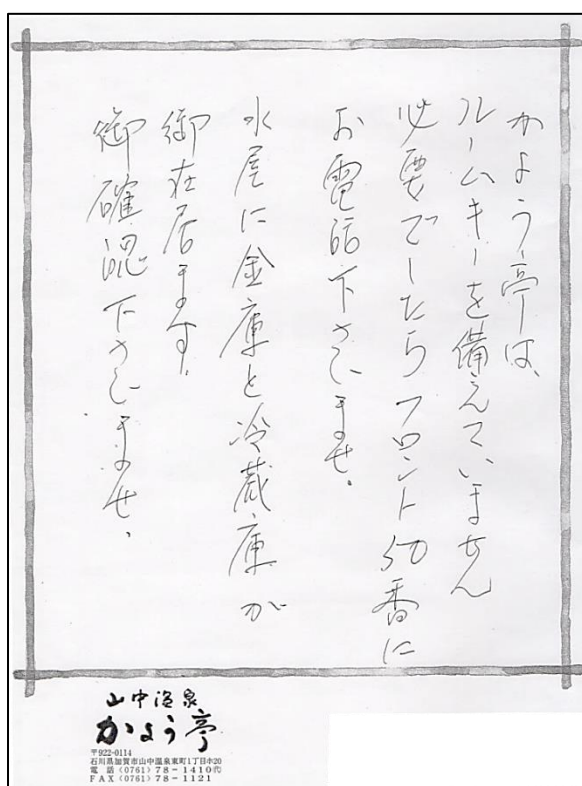 かよう亭は、
ルームキーを備えていません
必要でしたらフロント50番に
お電話下さいませ。
水屋に金庫と冷蔵庫が
御在居ます。
御確認下さいませ。
山中温泉
かよう亭
〒922-0114
石川県加賀市山中温泉東町1丁目ホ20
電話(0761)78-1410㈹
FAX(0761)78-1121